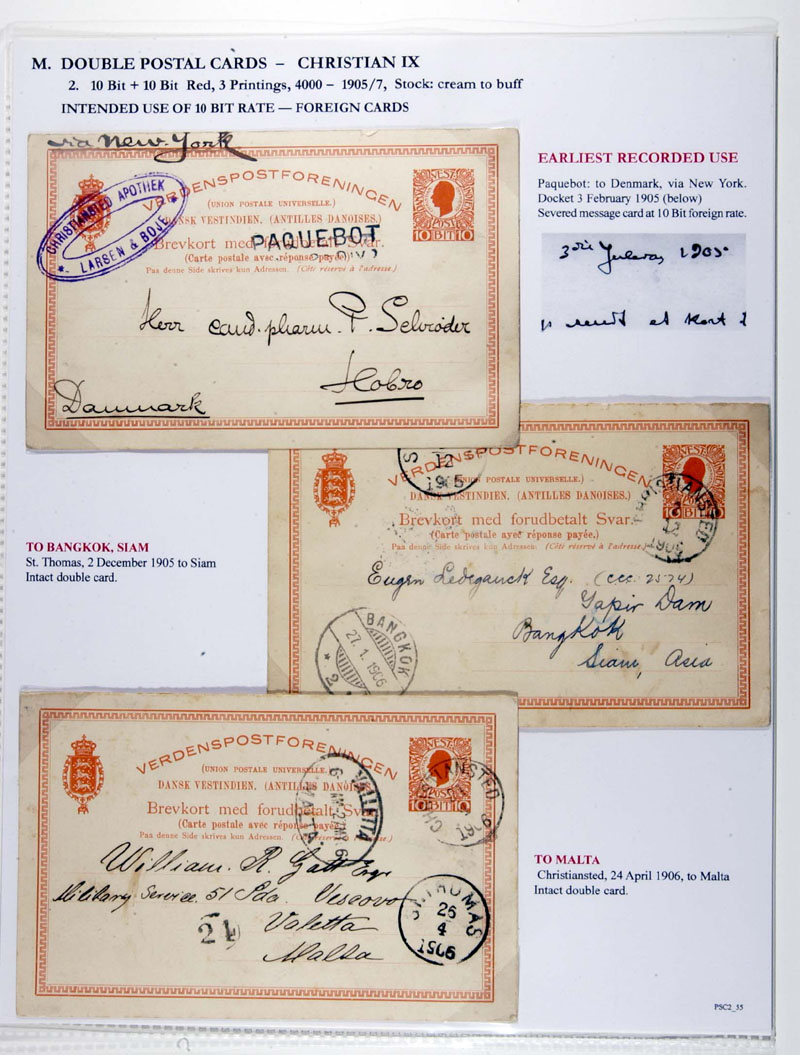 M. DOUBLE POSTAL CARDS – CHRISTIAN IX
2. 10 Bit + 10 Bit Red, 3 Printings, 4000 – 1905/7, Stock: cream to buff
INTENDED USE OF 10 BIT RATE — FOREIGN CARDS
via New York
CHRISTIANSTED APOTHEK
LARSEN & BOJE
VERDENSPOSTFORENINGEN
(UNION POSTALE UNIVERSELLE.)
DANSK VESTINDIEN. (ANTILLES DANOISES.)
PAQUEBOT
Brevkort med forudbetalt Svar.
(Carte postale avec réponse payée.)
Paa denne Side skrives kun Adressen. (Côté réservé à l'adresse.)
10 BIT 10
Herr cand. pharm. P. Schrøder
Hobro
Danmark
EARLIEST RECORDED USE
Paquebot: to Denmark, via New York.
Docket 3 February 1905 (below)
Severed message card at 10 Bit foreign rate.
1905
TO BANGKOK, SIAM
St. Thomas, 2 December 1905 to Siam
Intact double card.
12
1905
VERDENSPOSTFORENINGEN
(UNION POSTALE UNIVERSELLE.)
DANSK VESTINDIEN. (ANTILLES DANOISES.)
Brevkort med forudbetalt Svar.
(Carte postale avec réponse payée.)
Paa denne Side skrives kun Adressen. (Côté réservé à l'adresse.)
10 BIT 10
CHRISTIANSTED
12
1905
Eugen Ledeganck Esq. (CCC 2574)
Yapir Dam
Bangkok
Siam, Asia
BANGKOK
27.1.1906
2
VERDENSPOSTFORENINGEN
(UNION POSTALE UNIVERSELLE.)
DANSK VESTINDIEN. (ANTILLES DANOISES.)
Brevkort med forudbetalt Svar.
(Carte postale avec réponse payée.)
Paa denne Side skrives kun Adressen. (Côté réservé à l'adresse.)
10 BIT 10
VALLETTA
MALTA
CHRISTIANSTED
William R. Gatt Esqr
Military Service 51 Sda Vescovo
Valetta
Malta
21
ST. THOMAS
26
4
1906
TO MALTA
Christiansted, 24 April 1906, to Malta
Intact double card.
PSC2_55